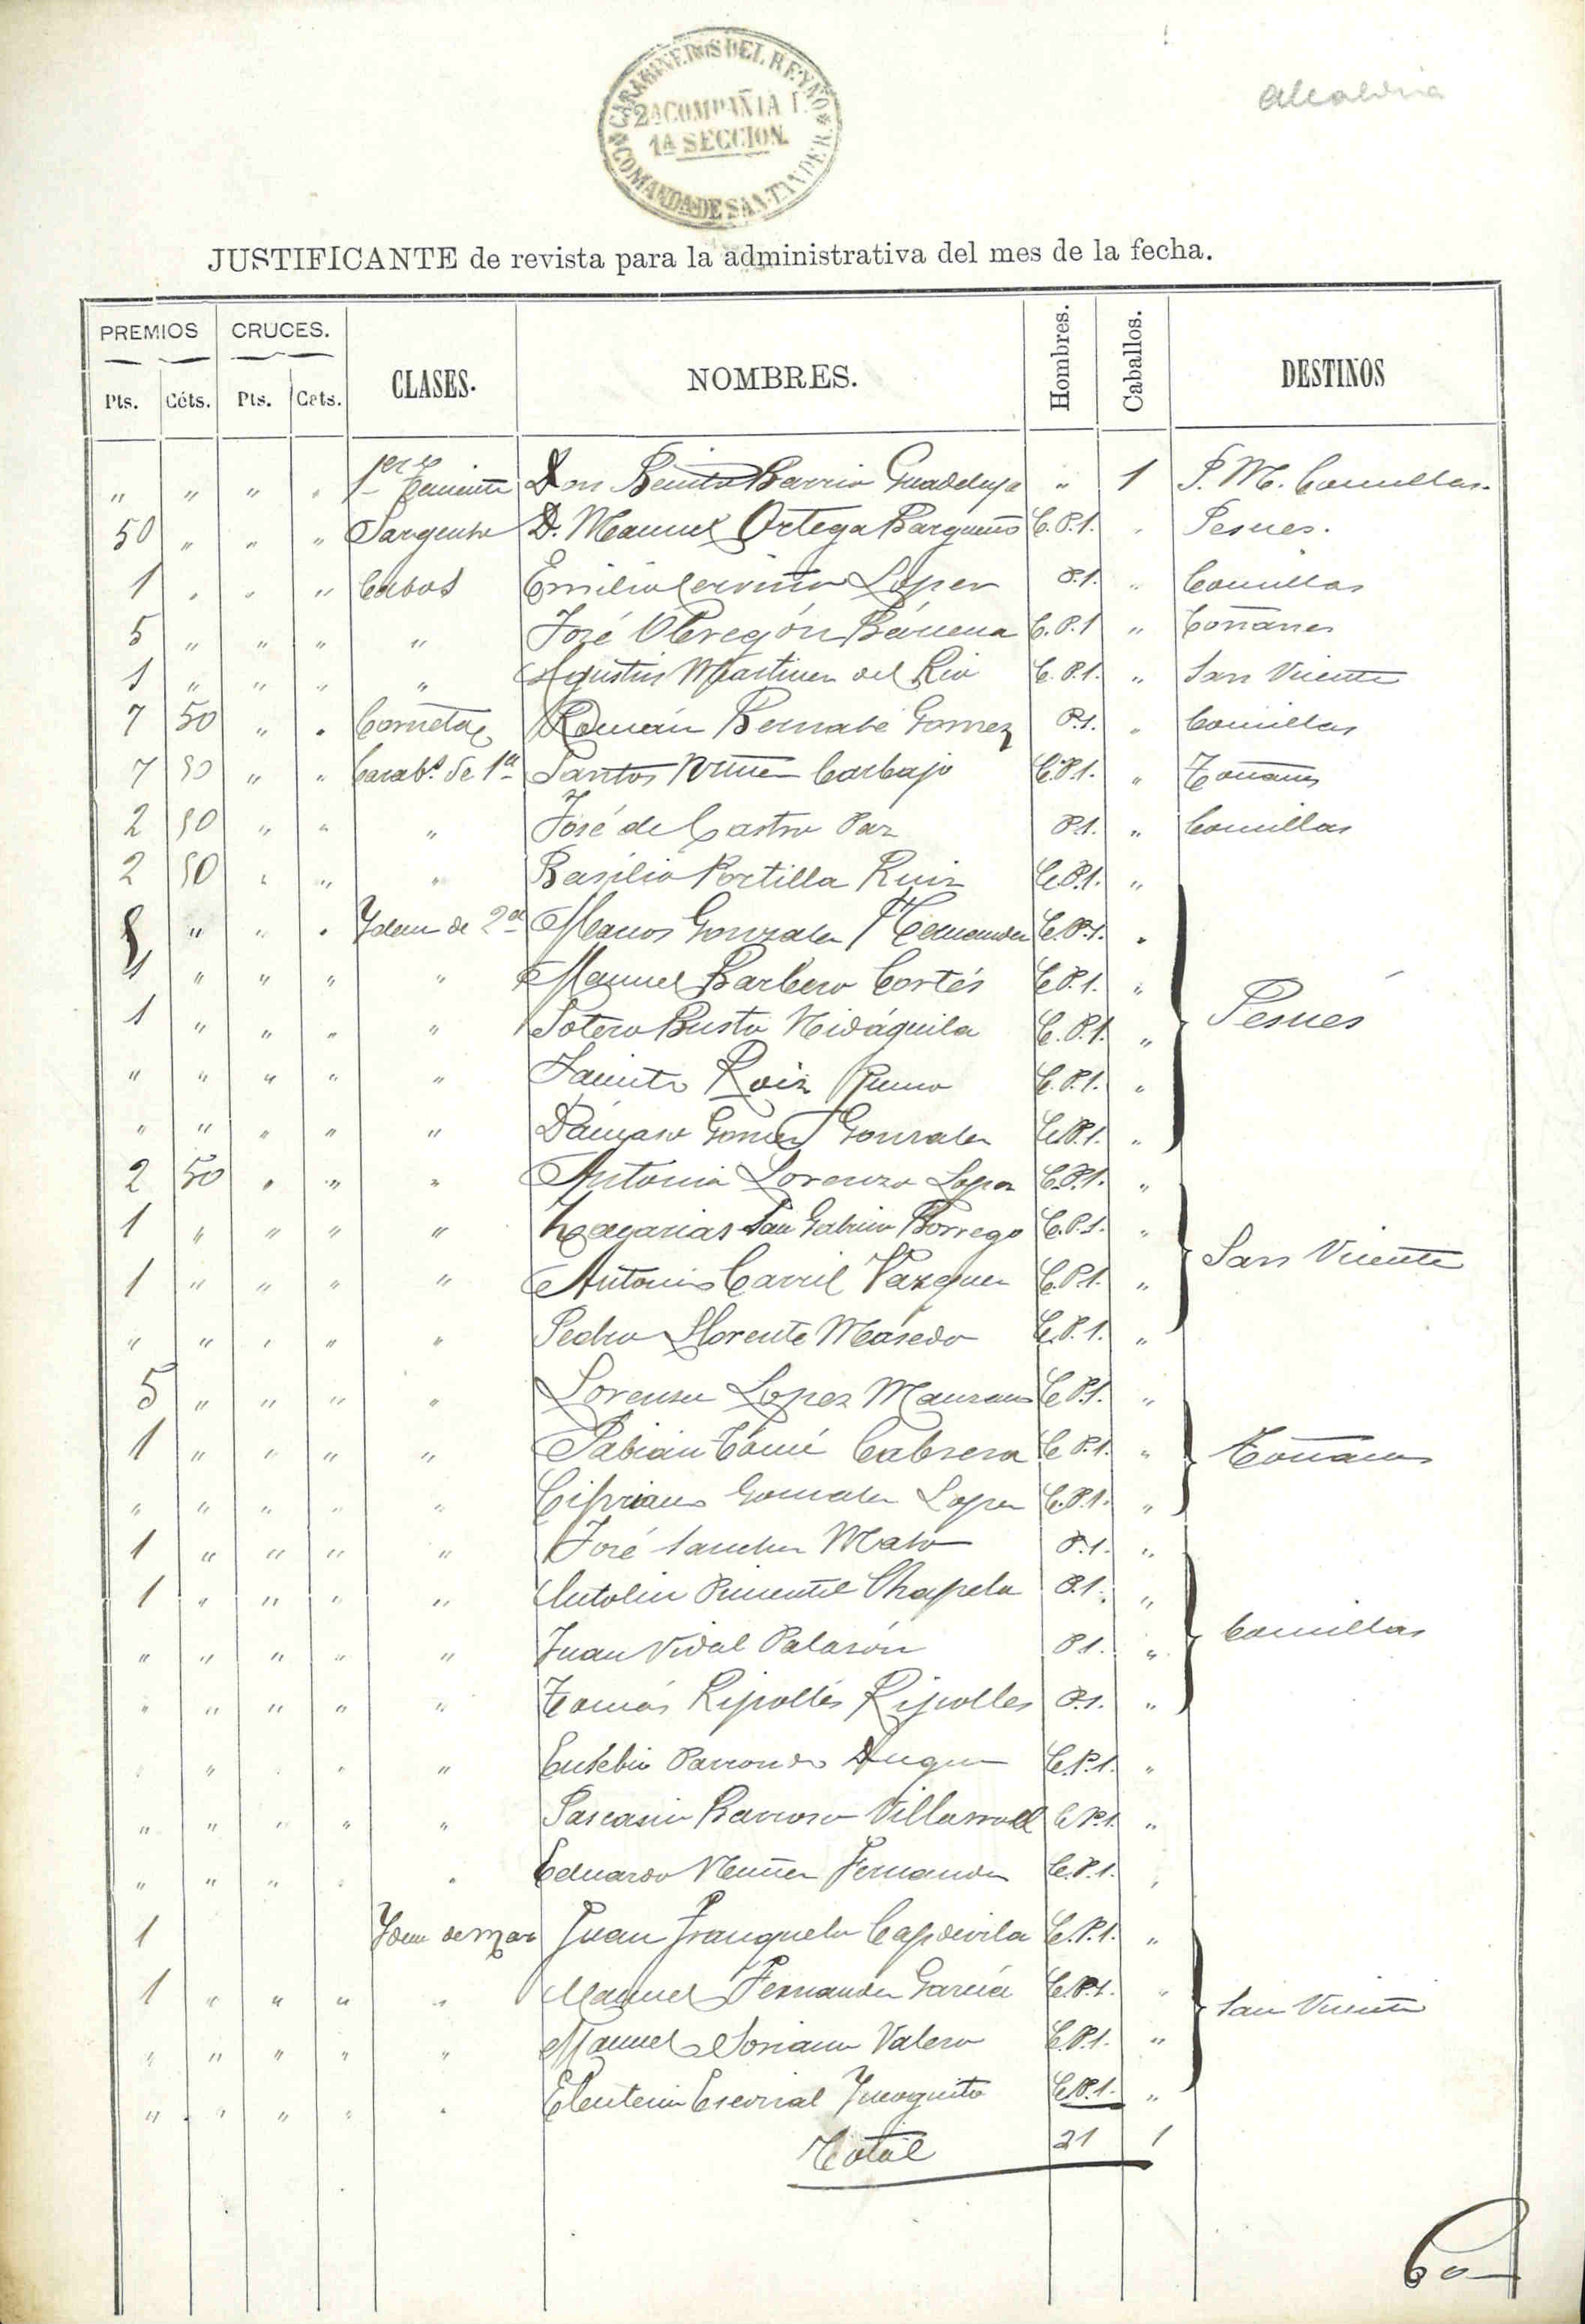 CARABINEROS DEL REYNO
2ª COMPAÑIA
1ª SECCION.
COMANDA DE SANTANDER
Alcaldia
JUSTIFICANTE de revista para la administrativa del mes de la fecha.
PREMIOS CRUCES. CLASES. NOMBRES. Hombres. Caballos. DESTINOS
Pts. Céts. Pts. Cets.
" " " " 1er Teniente Don Benito Barrio Guadalupe " 1 P. M. Comillas.
50 " " " Sargento D. Manuel Ortega Bargueño C.P.1. " Pesues.
1 " " " Cabos Emilio Cerviño Lopez P.1. " Comillas
5 " " " " José Obregón Bárcena C.P.1 " Toñanes
1 " " " " Agustin Martinez del Rio C.P.1. " San Vicente
7 50 " " Corneta Román Bernabé Gomez P.1. " Comillas
7 50 " " Carabs. de 1ª Santos Nuñez Carbajo C.P.1. " Toñanes
2 50 " " " José de Castro Paz P.1. " Comillas
2 50 " " " Basilio Portilla Ruiz C.P.1. "
" " " Ydem de 2ª Marcos Gonzalez Hernandez C.P.1. "
1 " " " " Manuel Barbero Cortés C.P.1. "
1 " " " " Sotero Busto Nidáguila C.P.1. " Pesués
" " " " " Jacinto Roiz C.P.1. "
" " " " " Dámaso Gomez Gonzalez C.P.1. "
2 50 " " " Antonio Lorenzo Lopez C.P.1. "
1 " " " " Zacarias San Gabino Borrego C.P.1. "
1 " " " " Antonio Carril Vazquez C.P.1. " San Vicente
" " " " " Pedro Llorente Masedo C.P.1. "
5 " " " " Lorenzo Lopez Manzano C.P.1. "
1 " " " " Fabian Tomé Cabrera C.P.1. " Toñanes
" " " " " Cipriano Gonzalez Lopez C.P.1. "
1 " " " " José Sanchez Mato P.1. "
1 " " " " Antolin Pimentel Chapela P.1. "
" " " " " Juan Vidal Palazón P.1. " Comillas
" " " " " Tomás Ripollés Ripolles P.1. "
" " " " " Eusebio Parrondo Duque C.P.1. "
" " " " " Pascasio Barroso Villarroel C.P.1. "
" " " " " Eduardo Nuñez Fernandez C.P.1. "
1 Ydem de mar Juan Franquelo Capdevila C.P.1. "
1 " " " " Manuel Fernandez Garcia C.P.1. " San Vicente
" " " " " Manuel Soriano Valero C.P.1. "
" " " " " Eleuterio Escorial Yncognito C.P.1. "
Total 21 1